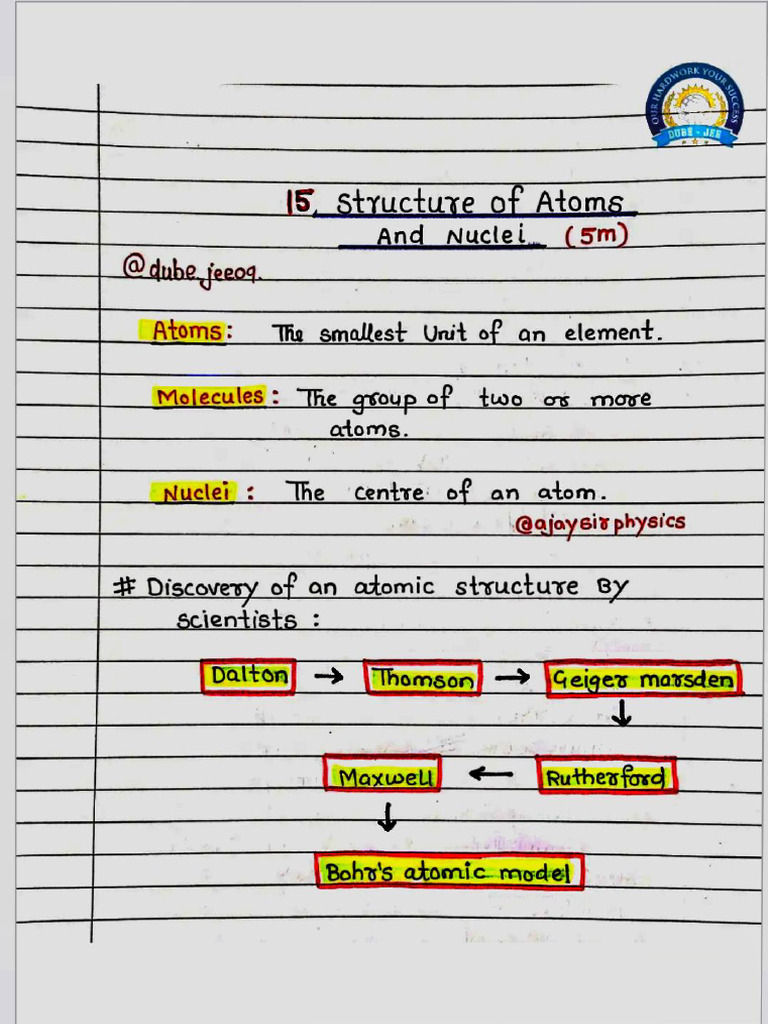 OUR HARDWORK YOUR SUCCESS
DUBE - JEE
15. Structure of Atoms
And Nuclei... (5m)
@dube_jee09.
Atoms: The smallest Unit of an element.
Molecules: The group of two or more
atoms.
Nuclei: The centre of an atom.
@ajaysirphysics
# Discovery of an atomic structure By
scientists:
Dalton → Thomson → Geiger marsden
↓
Maxwell ← Rutherford
↓
Bohr's atomic model